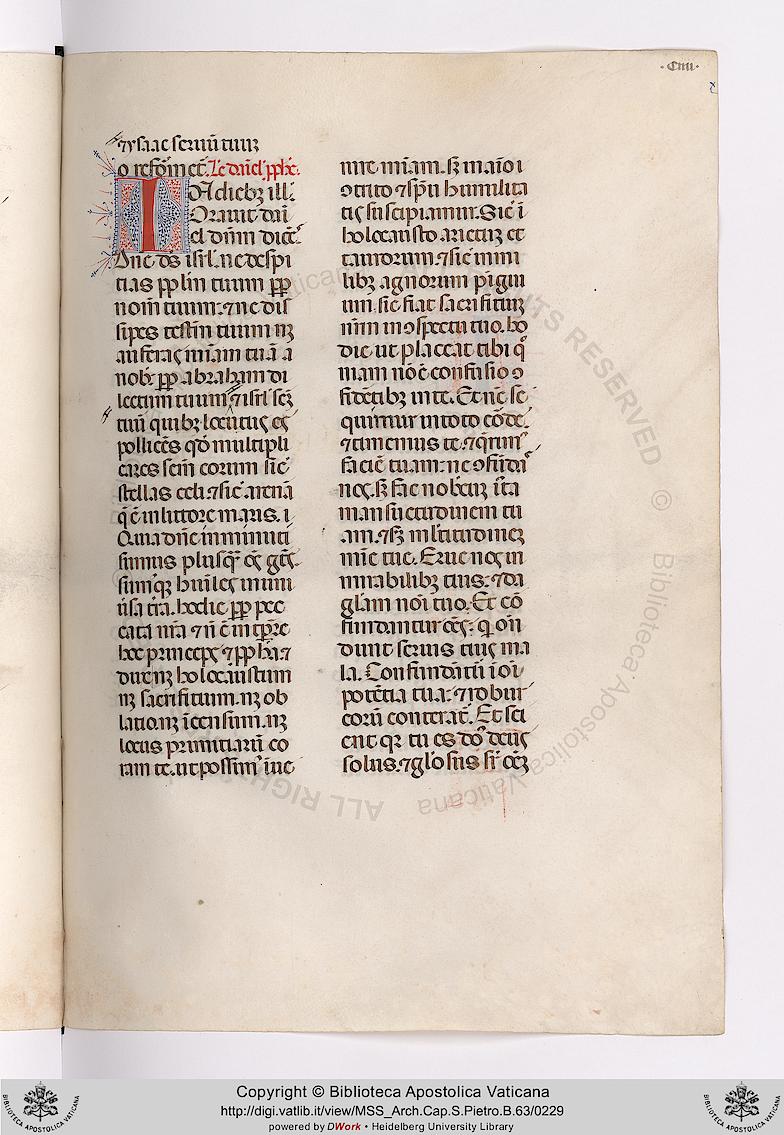 ·Ciiii·
⁊ysaac seruū tuuꝫ
o refōm etc̄. Lc̄ daniel' ꝓphē.
IN diebꝫ ill'.
Orauit dani
el dn̄m dicēs.
Dn̄e ds̄ isrl'. ne despi
tias ꝓplm̄ tuum ꝓꝓ
nom̄ tuum: ⁊ ne dis
sipes testm̄ tuum nꝫ
auferas mīam tuā a
nob̄. ꝓꝓ abraham di
lectum tuum ⁊ isrl' sc̄ꝫ
tuū quibꝫ locutus es
pollicēs qd̄ multipli
cares sem̄ eorum sic̄
stellas celi ⁊ sic̄ arenā
q̄ ē in littore maris.
Quia dn̄e imminuti
sumus plusqꝫ oēs gn̄tes.
sumꝰqꝫ humiles in uni
ūsa tr̄a. hodie ꝓꝓ pec
cata nr̄a ⁊ nō ē in tp̄re
hoc princeps ⁊ ꝓpha ⁊
dux nꝫ holocaustum
nꝫ sacrifitium. nꝫ ob
latio. nꝫ īcensum. nꝫ
locus primitiarū co
ram te. ut possimꝰ īue
nire mīam. sꝫ in aīo
ꝯtrito ⁊ spū humilita
tis suscipiamur. Sic̄ ī
holocausto arietuꝫ et
taurorum ⁊ sic̄ in mi
libꝫ agnorum pīgui
um. sic fiat sacrifituꝫ
nr̄m in ꝯspectu tuo. ho
die ut placeat tibi qm̄
niam nō ē confusio ꝯ
fidētibꝫ in te. Et nc̄ se
quimur in toto corde.
⁊ timemus te. ⁊ q̄rimꝰ
faciē tuam: ne ꝯfūdas
nos. sꝫ fac nobcuꝫ iuxta
mansuetudinem tu
am. ⁊ sꝫ ml'titudineꝫ
mīe tue. Erue nos in
mirabilibꝫ tuis: ⁊ da
gl'am noī tuo. Et cō
fundantur oēs: q̄ on̄
dunt seruis tuis ma
la. Confundāt̄ ī oī
potētia tua: ⁊ robur
eorū conterat̄. Et sci
ent qꝛ tu es dn̄s deus
solus. ⁊ gl'osus sr̄ oēꝫ
Copyright © Biblioteca Apostolica Vaticana
http://digi.vatlib.it/view/MSS_Arch.Cap.S.Pietro.B.63/0229
powered by DWork • Heidelberg University Library
BIBLIOTECA APOSTOLICA VATICANA
BIBLIOTECA APOSTOLICA VATICANA
© Biblioteca Apostolica Vaticana ALL RIGHTS RESERVED